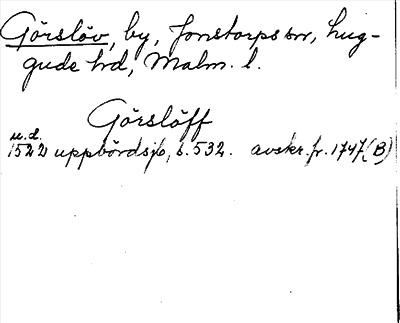 Görslöv, by, Jonstorps sn, Lug-
gude hd, Malm. l.
Görslöff
u.d.
1522 uppbördsjb, s. 532. avskr. fr. 1747 (B)